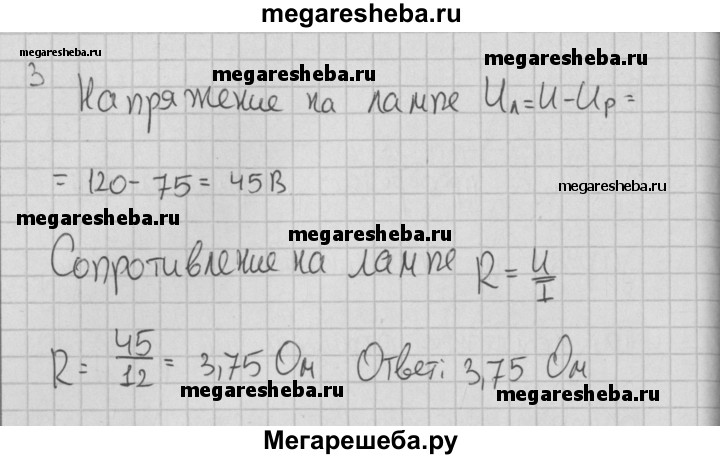 megaresheba.ru
megaresheba.ru
3
megaresheba.ru
megaresheba.ru
Напряжение на лампе Uл=U-Uр=
= 120-75= 45В
megaresheba.ru
megaresheba.ru
megaresheba.ru
Сопротивление на лампе R= U/I
R= 45/12 = 3,75 Ом Ответ: 3,75 Ом
megaresheba.ru
megaresheba.ru
Мегарешеба.ру